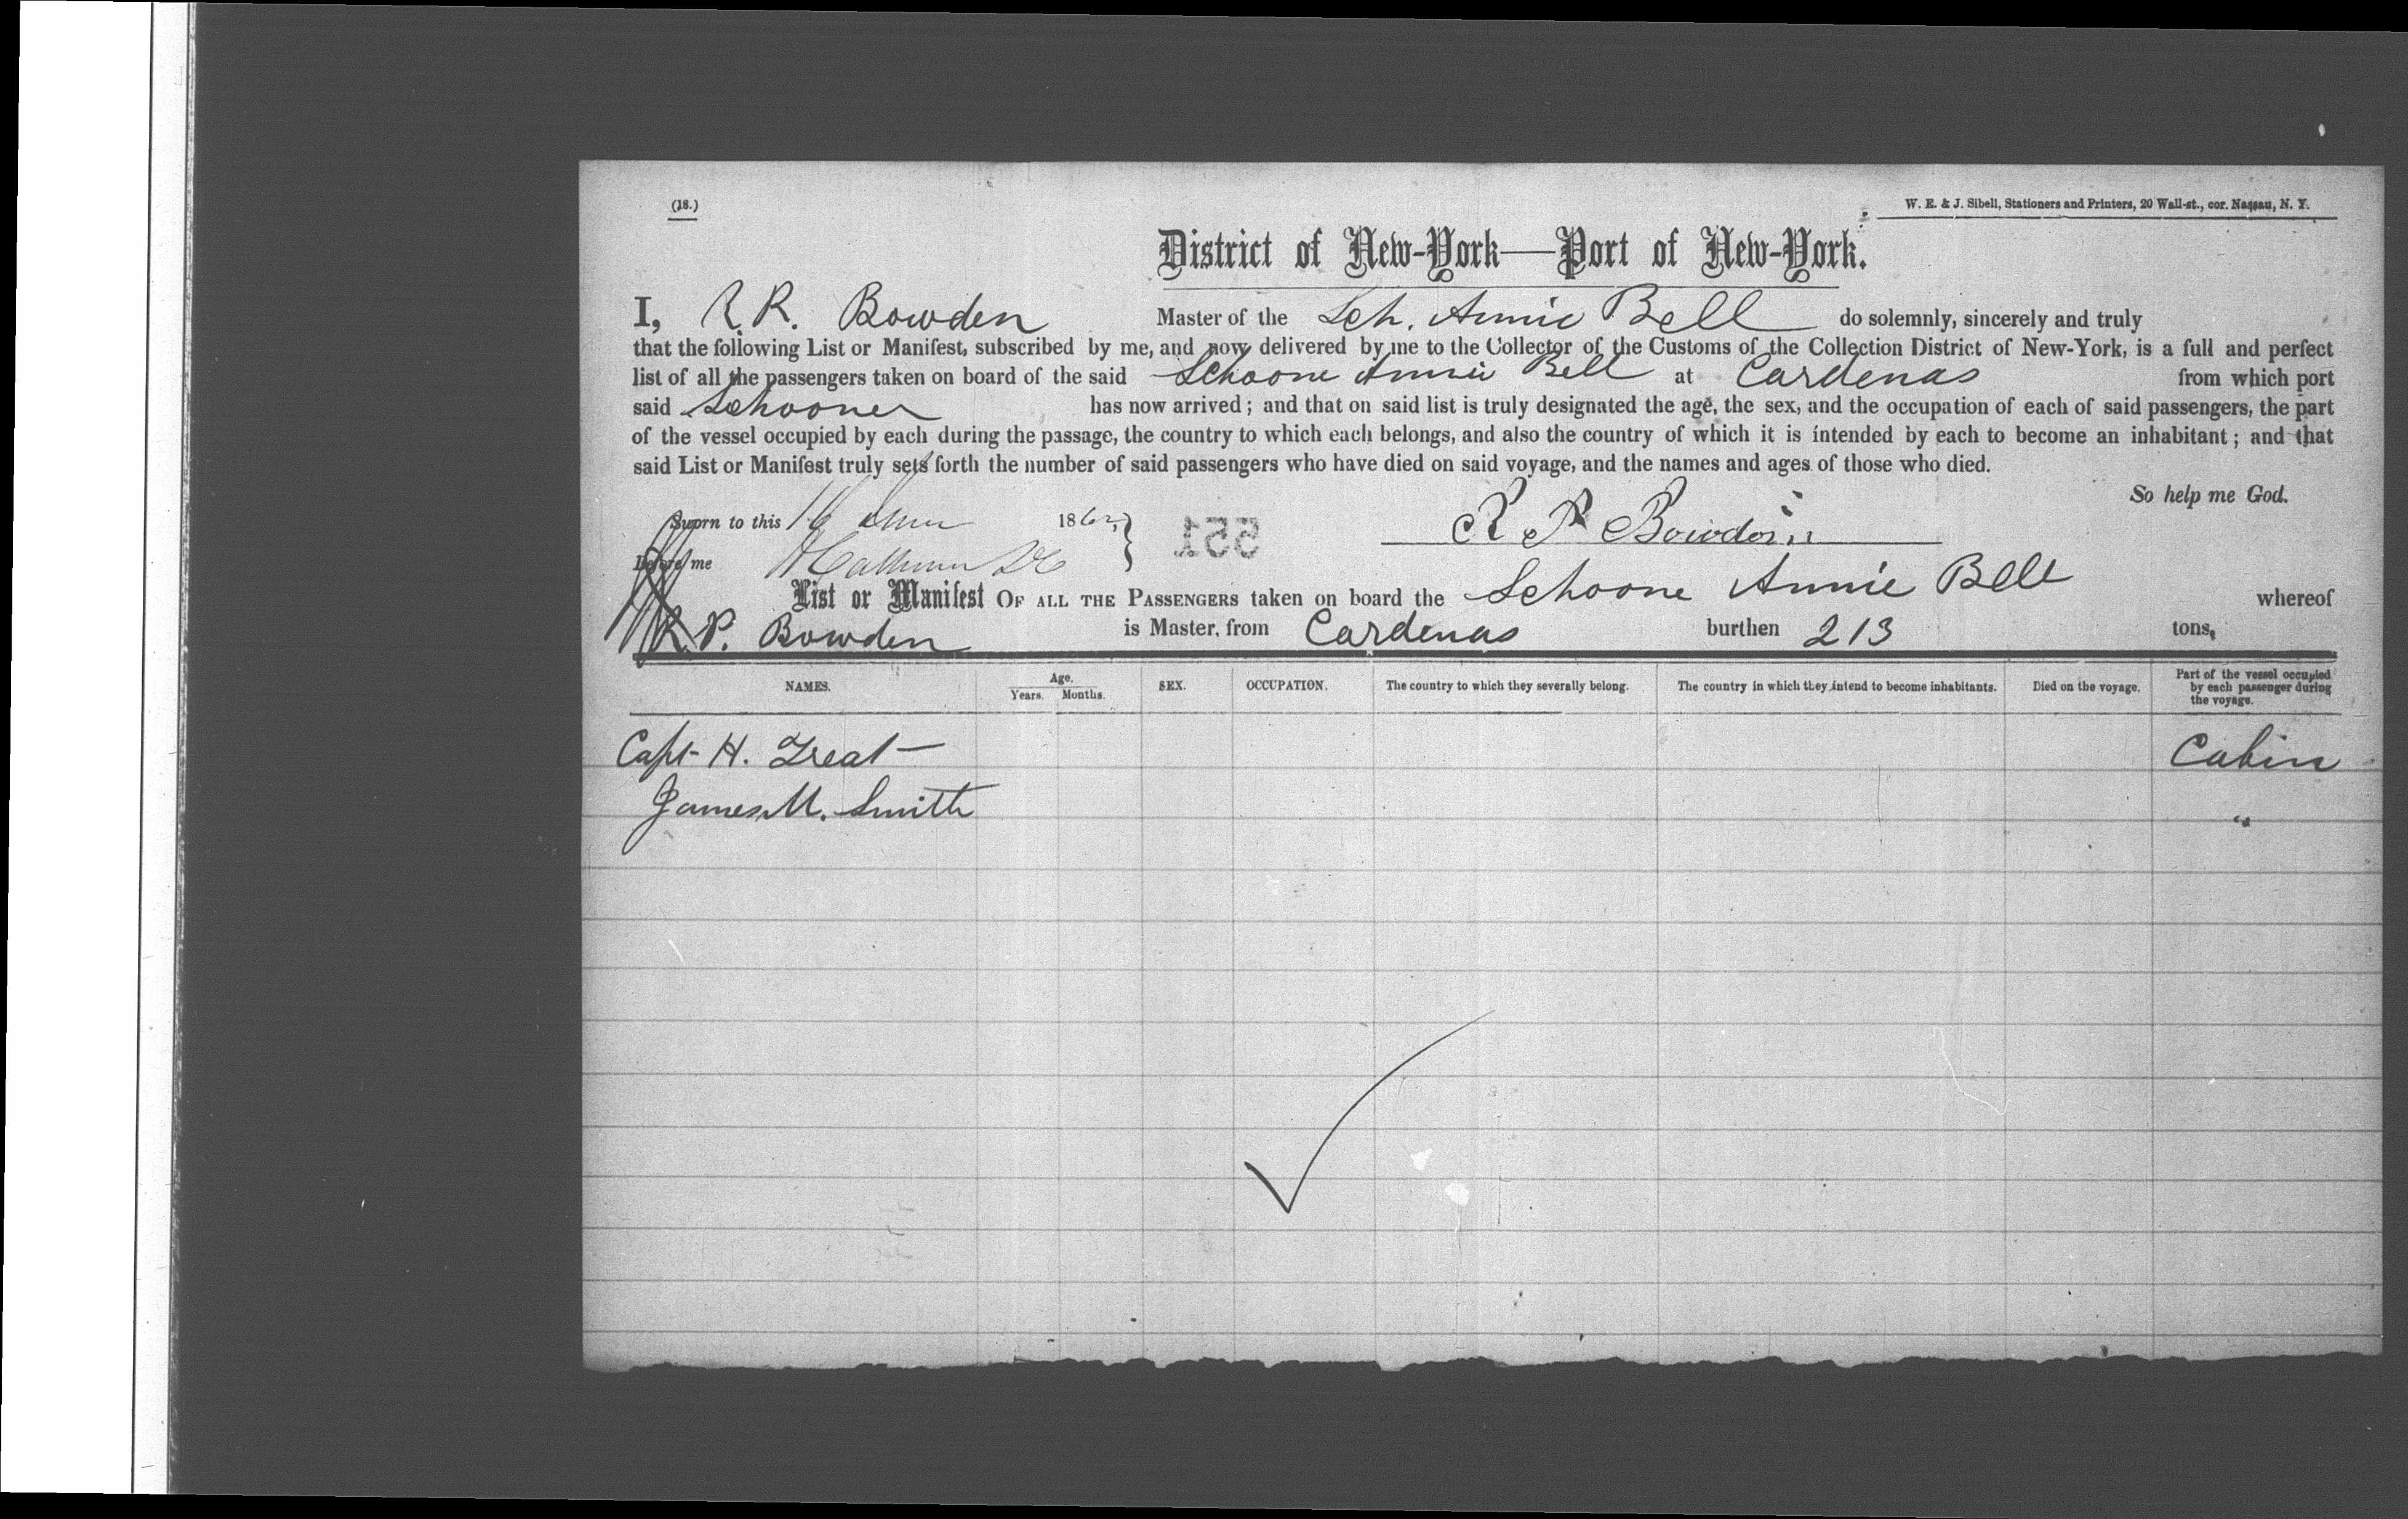 (18.)
W. E. & J. Sibell, Stationers and Printers, 20 Wall-st., cor. Nassau, N. Y.
District of New-York—Port of New-York.
I, R. R. Bowden Master of the Sch. Annie Bell do solemnly, sincerely and truly
that the following List or Manifest, subscribed by me, and now delivered by me to the Collector of the Customs of the Collection District of New-York, is a full and perfect
list of all the passengers taken on board of the said Schoone Annie Bell at Cardenas from which port
said Schooner has now arrived; and that on said list is truly designated the age, the sex, and the occupation of each of said passengers, the part
of the vessel occupied by each during the passage, the country to which each belongs, and also the country of which it is intended by each to become an inhabitant; and that
said List or Manifest truly sets forth the number of said passengers who have died on said voyage, and the names and ages of those who died.
So help me God.
Sworn to this 16 June 186
551
R P Bowden
Before me
List or Manifest OF ALL THE PASSENGERS taken on board the Schoone Annie Bell whereof
R. P. Bowden is Master, from Cardenas burthen 213 tons,
NAMES. Age. Years. Months. SEX. OCCUPATION. The country to which they severally belong. The country in which they intend to become inhabitants. Died on the voyage. Part of the vessel occupied by each passenger during the voyage.
Capt H. Treat Cabin
James M. Smith "